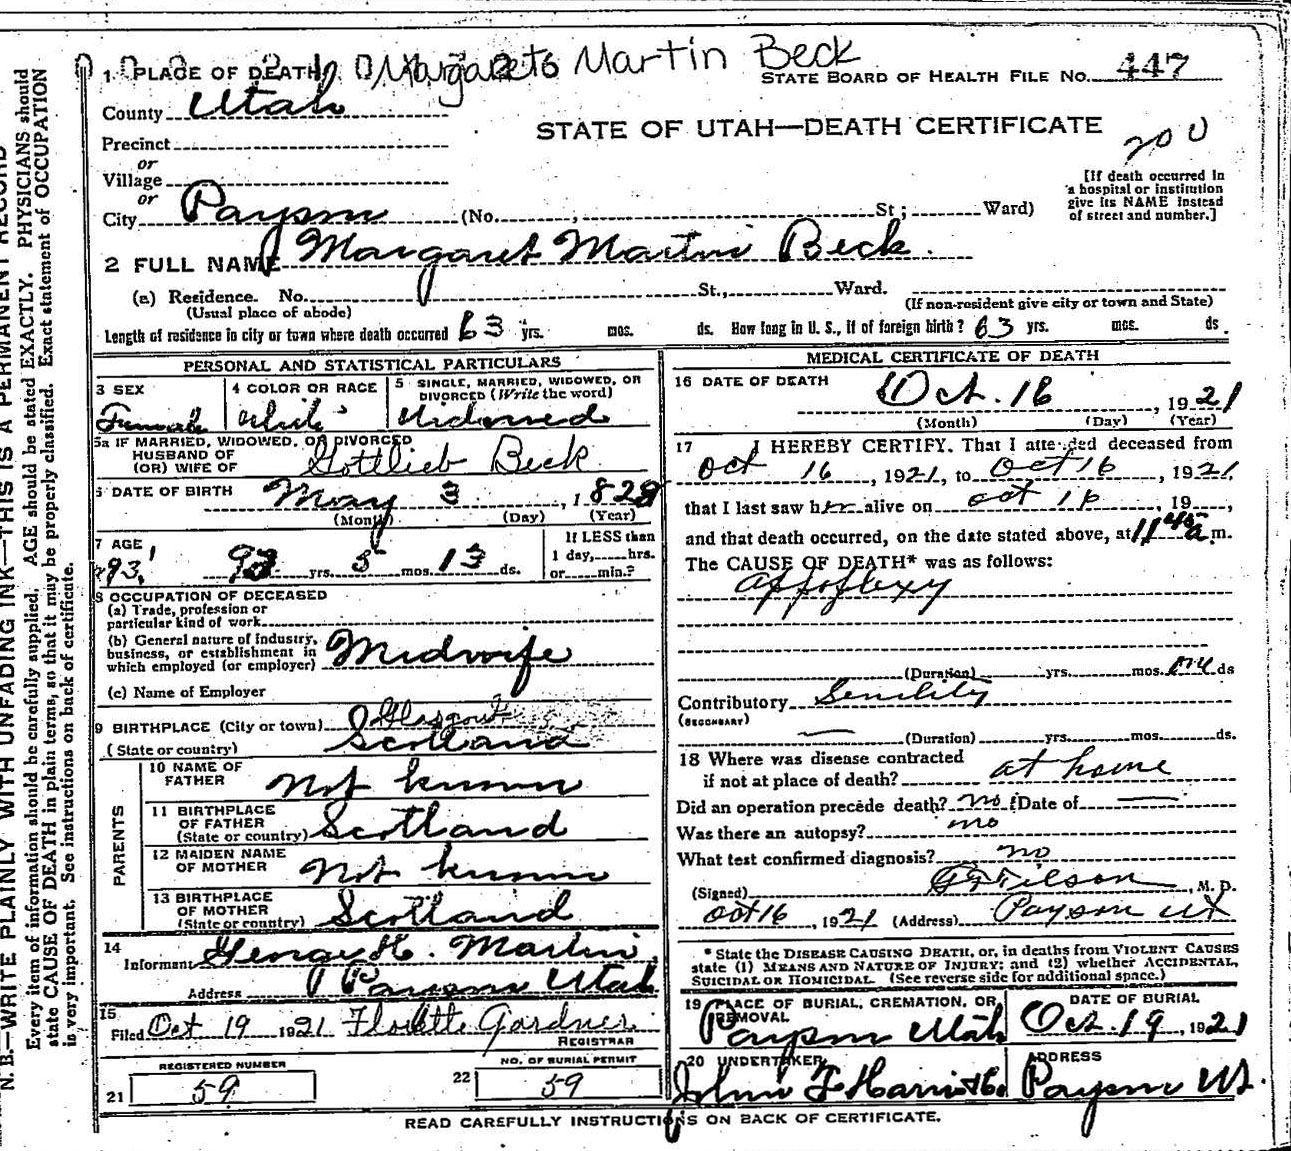 Margaret Martin Beck
1 PLACE OF DEATH
STATE BOARD OF HEALTH FILE NO. 447
County Utah
STATE OF UTAH—DEATH CERTIFICATE
200
Precinct
or
Village
or
City Payson (No. , St.; Ward)
[If death occurred in
a hospital or institution
give its NAME instead
of street and number.]
2 FULL NAME Margaret Martin Beck.
(a) Residence. No. St., Ward.
(Usual place of abode)
(If non-resident give city or town and State)
Length of residence in city or town where death occurred 63 yrs. mos. ds. How long in U. S., if of foreign birth? 63 yrs. mos. ds.
PERSONAL AND STATISTICAL PARTICULARS
3 SEX
Female
4 COLOR OR RACE
White
5 SINGLE, MARRIED, WIDOWED, OR
DIVORCED (Write the word)
Widowed
5a IF MARRIED, WIDOWED, OR DIVORCED
HUSBAND OF
(OR) WIFE OF Gottlieb Beck
6 DATE OF BIRTH May 3, 1828
(Month) (Day) (Year)
7 AGE
93 yrs. 5 mos. 13 ds.
If LESS than
1 day, hrs.
or min.?
8 OCCUPATION OF DECEASED
(a) Trade, profession or
particular kind of work
(b) General nature of industry,
business, or establishment in
which employed (or employer) Midwife
(c) Name of Employer
9 BIRTHPLACE (City or town) Glasgow
(State or country) Scotland
PARENTS
10 NAME OF
FATHER Not known
11 BIRTHPLACE
OF FATHER
(State or country) Scotland
12 MAIDEN NAME
OF MOTHER Not known
13 BIRTHPLACE
OF MOTHER
(State or country) Scotland
14
Informant George H. Martin
Address Payson Utah
15
Filed Oct 19 1921 Gardner
REGISTRAR
REGISTERED NUMBER
21 59
NO. OF BURIAL PERMIT
22 59
MEDICAL CERTIFICATE OF DEATH
16 DATE OF DEATH
Oct. 16, 1921
(Month) (Day) (Year)
17 I HEREBY CERTIFY. That I attended deceased from
Oct 16, 1921, to Oct 16, 1921,
that I last saw her alive on Oct 16, 19 ,
and that death occurred, on the date stated above, at 11 45 a m.
The CAUSE OF DEATH* was as follows:
Appoplexy
(Duration) yrs. mos. ds
Contributory Senility
(SECONDARY)
(Duration) yrs. mos. ds.
18 Where was disease contracted
if not at place of death? at home
Did an operation precede death? no Date of
Was there an autopsy? no
What test confirmed diagnosis? no
(Signed) M. D.
Oct 16, 1921 (Address) Payson Ut
* State the DISEASE CAUSING DEATH, or, in deaths from VIOLENT CAUSES
state (1) MEANS AND NATURE OF INJURY; and (2) whether ACCIDENTAL,
SUICIDAL OR HOMICIDAL. (See reverse side for additional space.)
19 PLACE OF BURIAL, CREMATION, OR
REMOVAL
Payson Utah
DATE OF BURIAL
Oct. 19, 1921
20 UNDERTAKER
John F
ADDRESS
Payson Ut.
READ CAREFULLY INSTRUCTIONS ON BACK OF CERTIFICATE.
N. B.—WRITE PLAINLY WITH UNFADING INK—THIS IS A PERMANENT RECORD
Every item of information should be carefully supplied. AGE should be stated EXACTLY. PHYSICIANS should
state CAUSE OF DEATH in plain terms, so that it may be properly classified. Exact statement of OCCUPATION
is very important. See instructions on back of certificate.